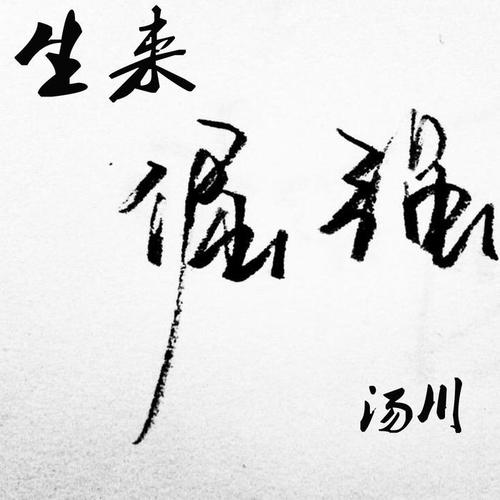 生来
倔强
汤川